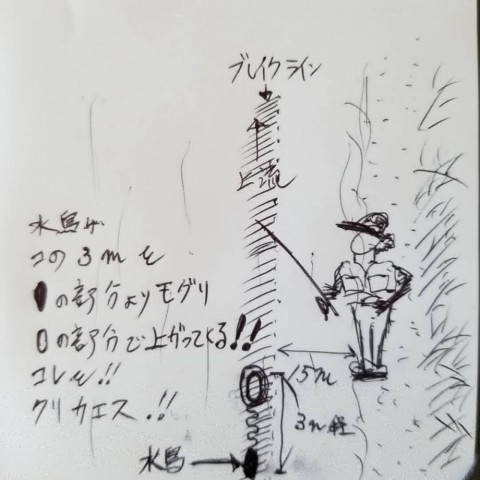 ブレイクライン
上流
水鳥が
コの3mを
の部分よりモグリ
0の部分で上がってくる!!
コレを!!
クリカエス.!!
15m
3m程
水鳥